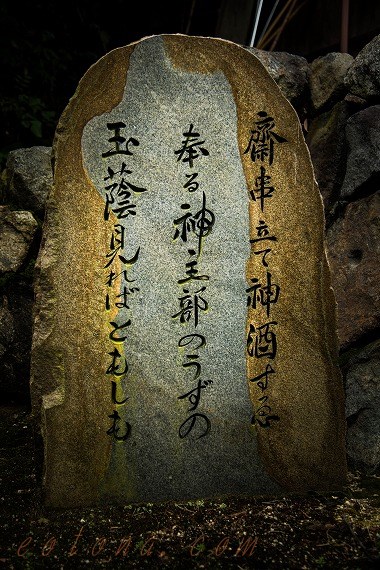 齋串立て神酒す忍
奉る神主部のうずの
玉蔭見ればともしも
cotona.com